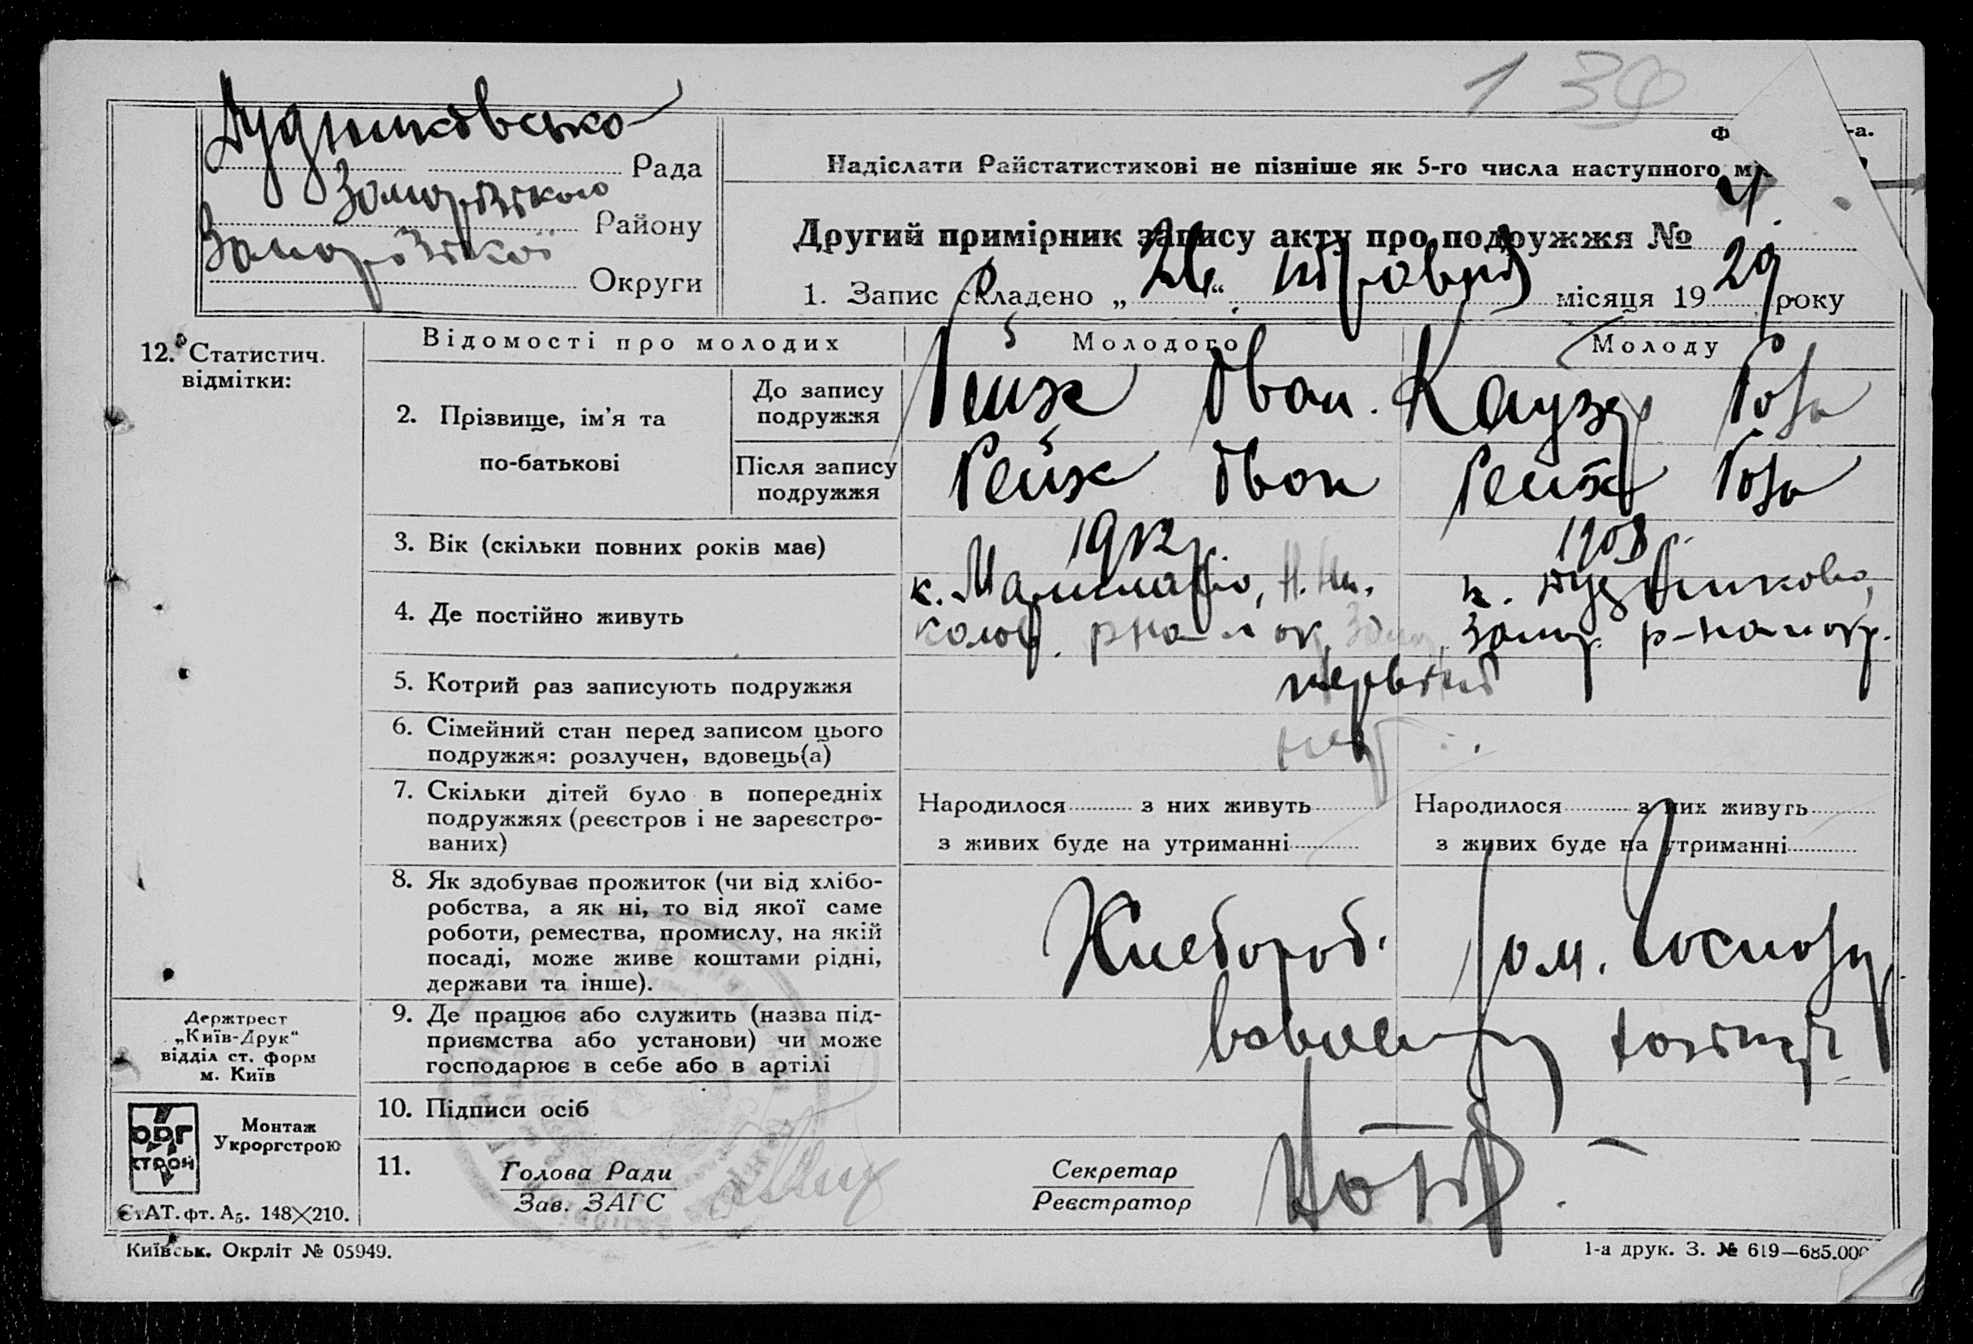 130
Дудниковсько
Рада
Запорізького
Району
Запорізької
Округи
Надіслати Райстатистикові не пізніше як 5-го числа наступного
Другий примірник запису акту про подружжя № 4.
1. Запис складено „26“ травня місяця 1929 року
12. Статистич.
відмітки:
Відомості про молодих
Молодого
Молоду
2. Прізвище, ім’я та
по-батькові
До запису
подружжя
Рейх Іван.
Роза
Після запису
подружжя
Рейх Іван
Рейх Роза
3. Вік (скільки повних років має)
1908
4. Де постійно живуть
р-на и ок.
Запор. р-на и окр.
5. Котрий раз записують подружжя
первий
6. Сімейний стан перед записом цього
подружжя: розлучен, вдовець(а)
нет
7. Скільки дітей було в попередніх
подружжях (реєстров і не зареєстро-
ваних)
Народилося з них живуть
з живих буде на утриманні
Народилося з них живуть
з живих буде на утриманні
8. Як здобуває прожиток (чи від хлібо-
робства, а як ні, то від якої саме
роботи, ремества, промислу, на якій
посаді, може живе коштами рідні,
держави та інше).
Хлебороб.
дом.
9. Де працює або служить (назва під-
приємства або установи) чи може
господарює в себе або в артілі
10. Підписи осіб
11. Голова Ради
Зав. ЗАГС
Секретар
Реєстратор
Держтрест
„Київ-Друк“
відділ ст. форм
м. Київ
ОРГ
СТРОЙ
Монтаж
Укроргстрою
СтАТ. фт. А₅. 148×210.
Київськ. Окрліт № 05949.
1-а друк. З. № 619—685.000